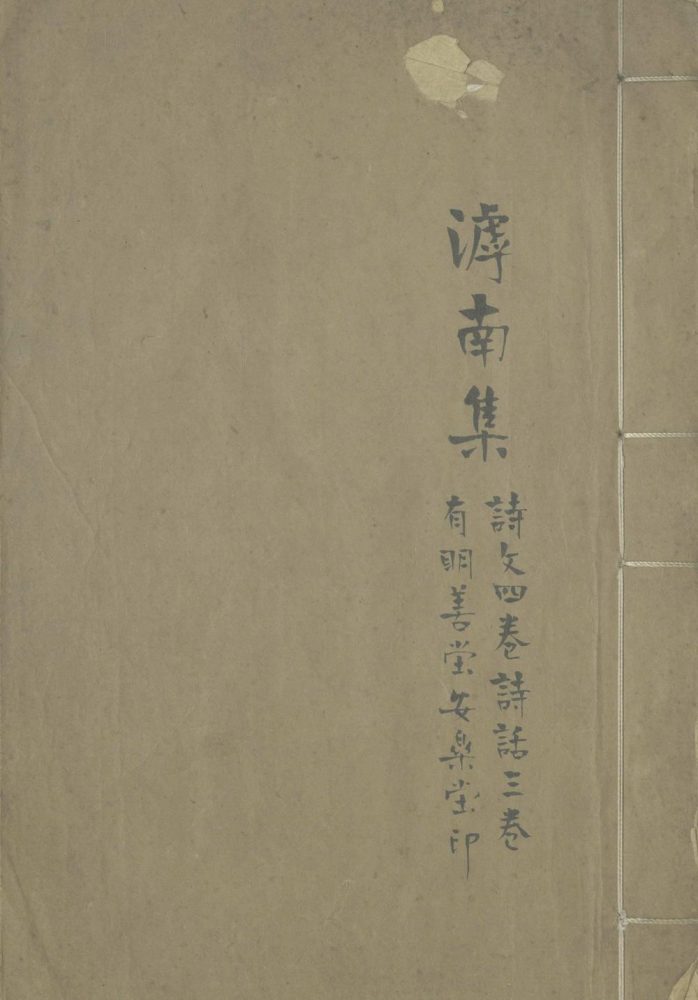 滹南集
詩文四卷詩話三卷
有明善堂安樂堂印